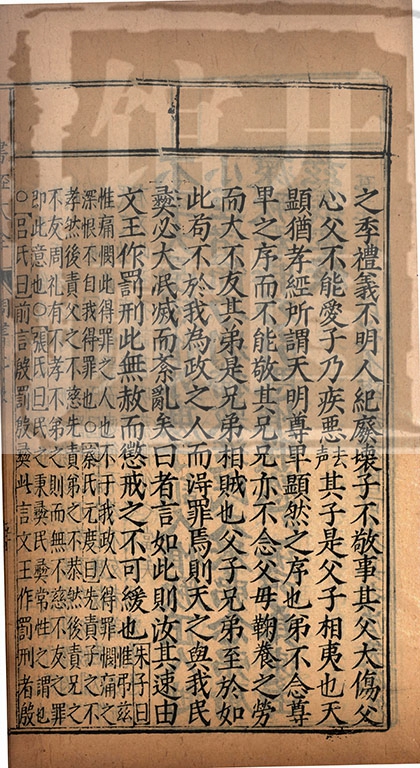 之季禮義不明人紀廢壞子不敬事其父大傷父
心父不能愛子乃疾惡去聲其子是父子相夷也天
顯猶孝經所謂天明尊卑顯然之序也弟不念尊
卑之序而不能敬其兄兄亦不念父母鞠養之勞
而大不友其弟是兄弟相賊也父子兄弟至於如
此苟不於我為政之人而得罪焉則天之與我民
彝必大泯滅而紊亂矣曰者言如此則汝其速由
文王作罰刑此無赦而懲戒之不可緩也朱子曰惟弔兹
惟痛憫此得罪之人也不于我政人得罪惟痛之
深恨不自我得罪也○蔡氏元度曰先責子之不
孝然後責父之不慈先責弟之不恭然後責兄之
不友周礼有不孝不弟之刑而無不慈不友之罪
即此意也○張氏曰民之秉彝民彝常性之謂也
○呂氏曰前言殷罰殷彝此言文王作罰刑者殷